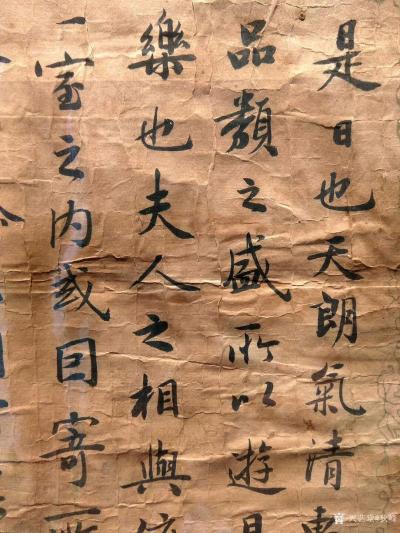 是日也天朗氣清惠
品類之盛所以遊目
樂也夫人之相與俯
一室之内或因寄所